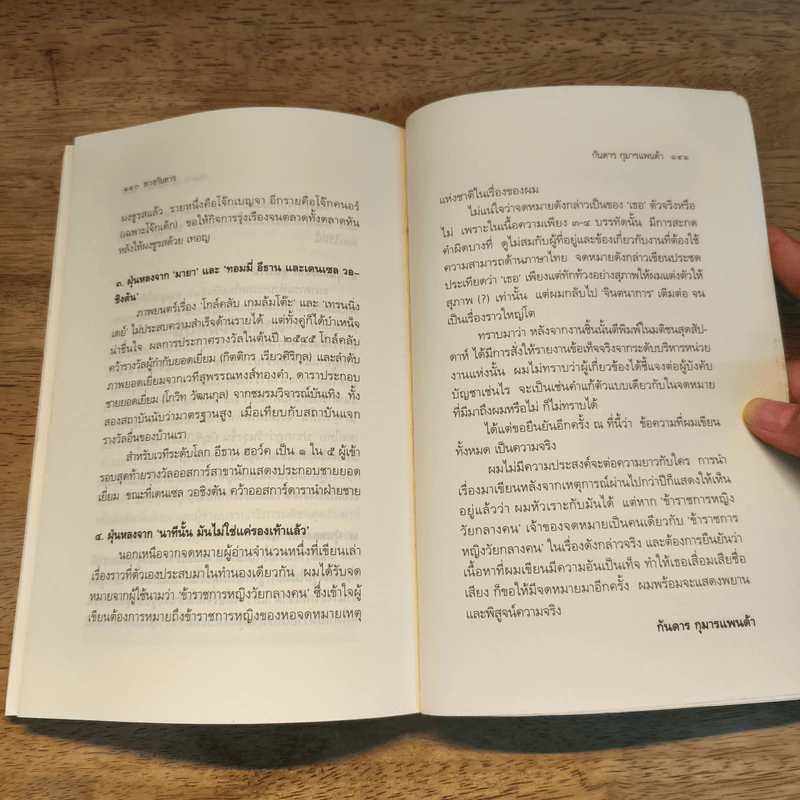 ๑๔๐ ทายกันดาร
ผงชูรสแล้ว รายหนึ่งคือโจ๊กเบญจา อีกรายคือโจ๊กคนอร์
(เฉพาะโจ๊กเด็ก) ขอให้กิจการรุ่งเรืองจนตลาดทั้งตลาดหัน
หลังให้ผงชูรสด้วย เทอญ
๓. ฝุ่นหลงจาก 'มายา' และ 'ทอมมี่ อีธาน และเดนเซล วอ-
ชิงตัน'
ภาพยนตร์เรื่อง 'โกล์คลับ เกมล้มโต๊ะ' และ 'เทรนนิ่ง
เดย์' ไม่ประสบความสำเร็จด้านรายได้ แต่ทั้งคู่ก็ได้บำเหน็จ
น่าชื่นใจ ผลการประกาศรางวัลในต้นปี ๒๕๔๕ โกล์คลับ
คว้ารางวัลผู้กำกับยอดเยี่ยม (กิตติกร เรียวศิริกุล) และลำดับ
ภาพยอดเยี่ยมจากเวทีสุพรรณหงส์ทองคำ, ดาราประกอบ
ชายยอดเยี่ยม (โกวิท วัฒนกุล) จากชมรมวิจารณ์บันเทิง ทั้ง
สองสถาบันนับว่ามาตรฐานสูง เมื่อเทียบกับสถาบันแจก
รางวัลอื่นของบ้านเรา
สำหรับเวทีระดับโลก อีธาน ฮอว์ค เป็น ๑ ใน ๕ ผู้เข้า
รอบสุดท้ายรางวัลออสการ์สาขานักแสดงประกอบชายยอด
เยี่ยม ขณะที่เดนเซล วอชิงตัน คว้าออสการ์ดารานำฝ่ายชาย
๔. ฝุ่นหลงจาก 'นาทีนั้น มันไม่ใช่แค่รองเท้าแล้ว'
นอกเหนือจากจดหมายผู้อ่านจำนวนหนึ่งที่เขียนเล่า
เรื่องราวที่ตัวเองประสบมาในทำนองเดียวกัน ผมได้รับจด
หมายจากผู้ใช้นามว่า 'ข้าราชการหญิงวัยกลางคน' ซึ่งเข้าใจผู้
เขียนต้องการหมายถึงข้าราชการหญิงของหอจดหมายเหตุ
กันดาร กุมารแพนด้า ๑๔๑
แห่งชาติในเรื่องของผม
ไม่แน่ใจว่าจดหมายดังกล่าวเป็นของ 'เธอ' ตัวจริงหรือ
ไม่ เพราะในเนื้อความเพียง ๓-๔ บรรทัดนั้น มีการสะกด
คำผิดบางที่ ดูไม่สมกับผู้ที่อยู่และข้องเกี่ยวกับงานที่ต้องใช้
ความสามารถด้านภาษาไทย จดหมายดังกล่าวเขียนประชด
ประเทียดว่า 'เธอ' เพียงแต่ทักท้วงอย่างสุภาพให้ผมแต่งตัวให้
สุภาพ (?) เท่านั้น แต่ผมกลับไป 'จินตนาการ' เติมต่อ จน
เป็นเรื่องราวใหญ่โต
ทราบมาว่า หลังจากงานชิ้นนั้นตีพิมพ์ในมติชนสุดสัป-
ดาห์ ได้มีการสั่งให้รายงานข้อเท็จจริงจากระดับบริหารหน่วย
งานแห่งนั้น ผมไม่ทราบว่าผู้เกี่ยวข้องได้ชี้แจงต่อผู้บังคับ
บัญชาเช่นไร จะเป็นเช่นคำแก้ตัวแบบเดียวกับในจดหมาย
ที่มีมาถึงผมหรือไม่ ก็ไม่ทราบได้
ได้แต่ขอยืนยันอีกครั้ง ณ ที่นี้ว่า ข้อความที่ผมเขียน
ทั้งหมด เป็นความจริง
ผมไม่มีความประสงค์จะต่อความยาวกับใคร การนำ
เรื่องมาเขียนหลังจากเหตุการณ์ผ่านไปกว่าปีก็แสดงให้เห็น
อยู่แล้วว่า ผมหัวเราะกับมันได้ แต่หาก 'ข้าราชการหญิง
วัยกลางคน' เจ้าของจดหมายเป็นคนเดียวกับ 'ข้าราชการ
หญิงวัยกลางคน' ในเรื่องดังกล่าวจริง และต้องการยืนยันว่า
เนื้อหาที่ผมเขียนมีความอันเป็นเท็จ ทำให้เธอเสื่อมเสียชื่อ
เสียง ก็ขอให้มีจดหมายมาอีกครั้ง ผมพร้อมจะแสดงพยาน
และพิสูจน์ความจริง
กันดาร กุมารแพนด้า